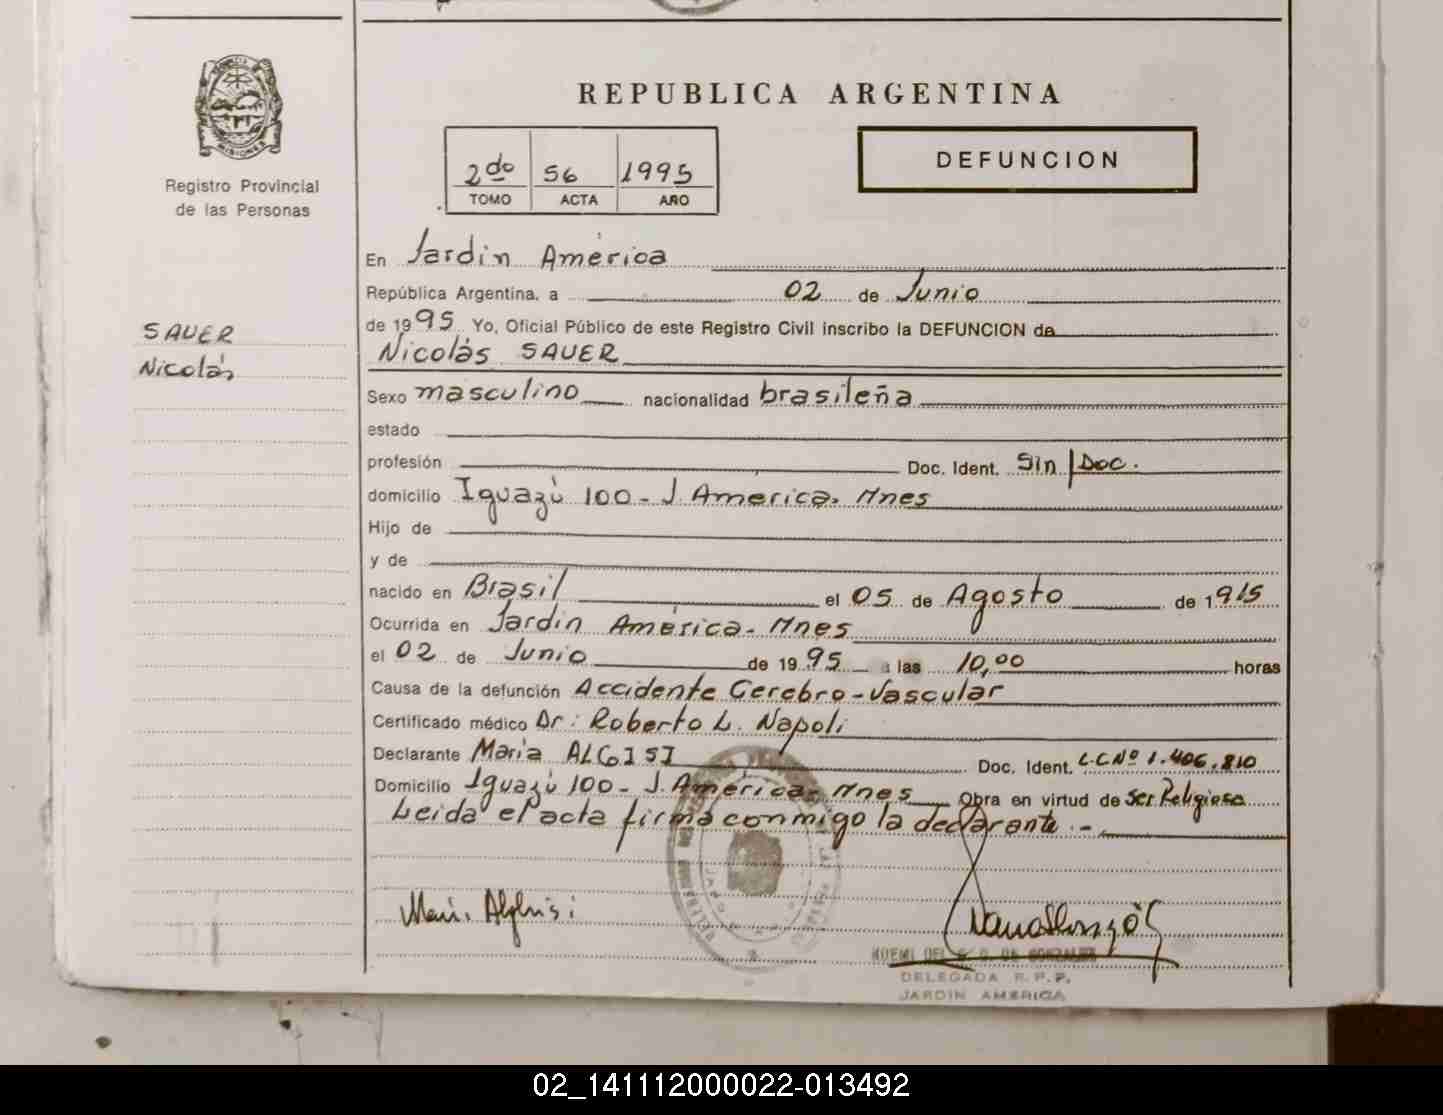 MISIONES
Registro Provincial
de las Personas
SAUER
Nicolás
REPUBLICA ARGENTINA
2do 56 1995
TOMO ACTA AÑO
DEFUNCION
En Jardín América
República Argentina, a 02 de Junio
de 1995 Yo, Oficial Público de este Registro Civil inscribo la DEFUNCION de
Nicolás SAUER
Sexo masculino nacionalidad brasileña
estado
profesión Doc. Ident. Sin/Doc.
domicilio Iguazú 100- J. America. Mnes
Hijo de
y de
nacido en Brasil el 05 de Agosto de 1915
Ocurrida en Jardín América- Mnes
el 02 de Junio de 1995 a las 10,00 horas
Causa de la defunción Accidente Cerebro-Vascular
Certificado médico Dr: Roberto L. Napoli
Declarante María ALGISI Doc. Ident. L.C Nº 1.406.810
Domicilio Iguazú 100- J. América- Mnes Obra en virtud de Ser Religiosa
Leida el acta firma conmigo la declarante.-
DELEGADA R.P.P.
JARDIN AMERICA
02_141112000022-013492